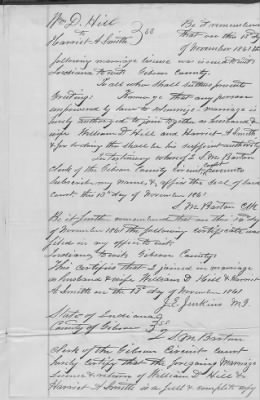 Wm D. Hill
to
Harriet A Smith
Be it remembered
that on this 13th day
of November 1861 the
following marriage license was issued to wit
Indiana to wit Gibson County
To all who shall see these presents
Greeting: any person
empowered by law to marriage is
hereby authorized to join together as husband &
wife William D Hill and Harriet A Smith
& for so doing this shall be his sufficient authority
In testimony whereof I S. M. Barton
Clerk of the Gibson County Circuit Court hereunto
subscribe my name, & affix the seal of said
court this 13th day of November 1861
S. M. Barton Clk
Be it further remembered that on this day
of November 1861 the following certificate was
filed in my office to wit
Indiana to wit Gibson County
This certifies that I joined in marriage
as husband & wife William D. Hill & Harriet
A Smith on the 13th day of November 1861
J. E. Jenkins M. G.
State of Indiana
County of Gibson
I S. M. Barton
Clerk of the Gibson Circuit Court
hereby certify that the foregoing Marriage
License & return of William D. Hill &
Harriet A Smith is a full & complete copy